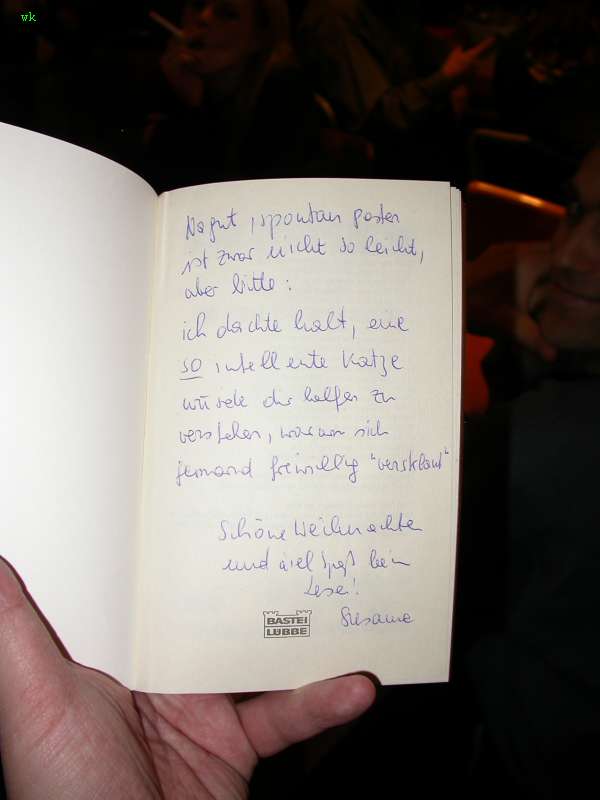 wk
Na gut, spontan posten
ist zwar nicht so leicht,
aber bitte:
ich dachte halt, eine
so intellente Katze
würde dir helfen zu
verstehen, warum sich
jemand freiwillig "versklavt"
Schöne Weihnachten
und viel Spaß beim
Lesen!
Susanne
BASTEI
LÜBBE